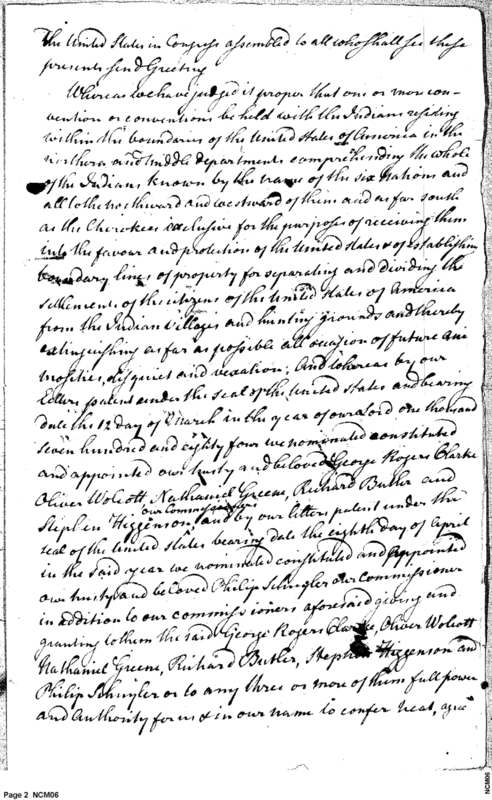 The United States in Congress assembled to all who shall see these
presents send Greeting
Whereas we have judged it proper that one or more con-
vention or conventions be held with the Indians residing
within the boundaries of the United States of America in the
northern and middle departments comprehending the whole
of the Indians known by the name of the six Nations and
all to the northward and westward of them and as far south
as the Cherokees exclusive for the purposes of receiving them
into the favour and protection of the United States & of establishing
boundary lines of property for separating and dividing the
settlements of the citizens of the United States of America
from the Indian Villages and hunting grounds and thereby
extinguishing as far as possible all occasion of future ani
mosities, disquiet and vexation; And whereas by our
letters patent under the seal of the United States and bearing
date the 12 day of March in the year of our Lord one thousand
seven hundred and eighty four we nominated constituted
and appointed our trusty and beloved George Rogers Clarke
Oliver Wolcott, Nathaniel Greene, Richard Butler and
our Commissioners
Stephen Higgenson, and by our letters patent under the
seal of the United States bearing date the eighth day of April
in the said year we nominated constituted and appointed
our trusty and beloved Philip Schuyler our Commissioner
in addition to our commissioners aforesaid giving and
granting to them the said George Rogers Clarke, Oliver Wolcott
Nathaniel Greene, Richard Butler, Stephen Higgenson and
Philip Schuyler or to any three or more of them full power
and Authority for us & in our name to confer treat, agree
Page 2 NCM06
NCM06